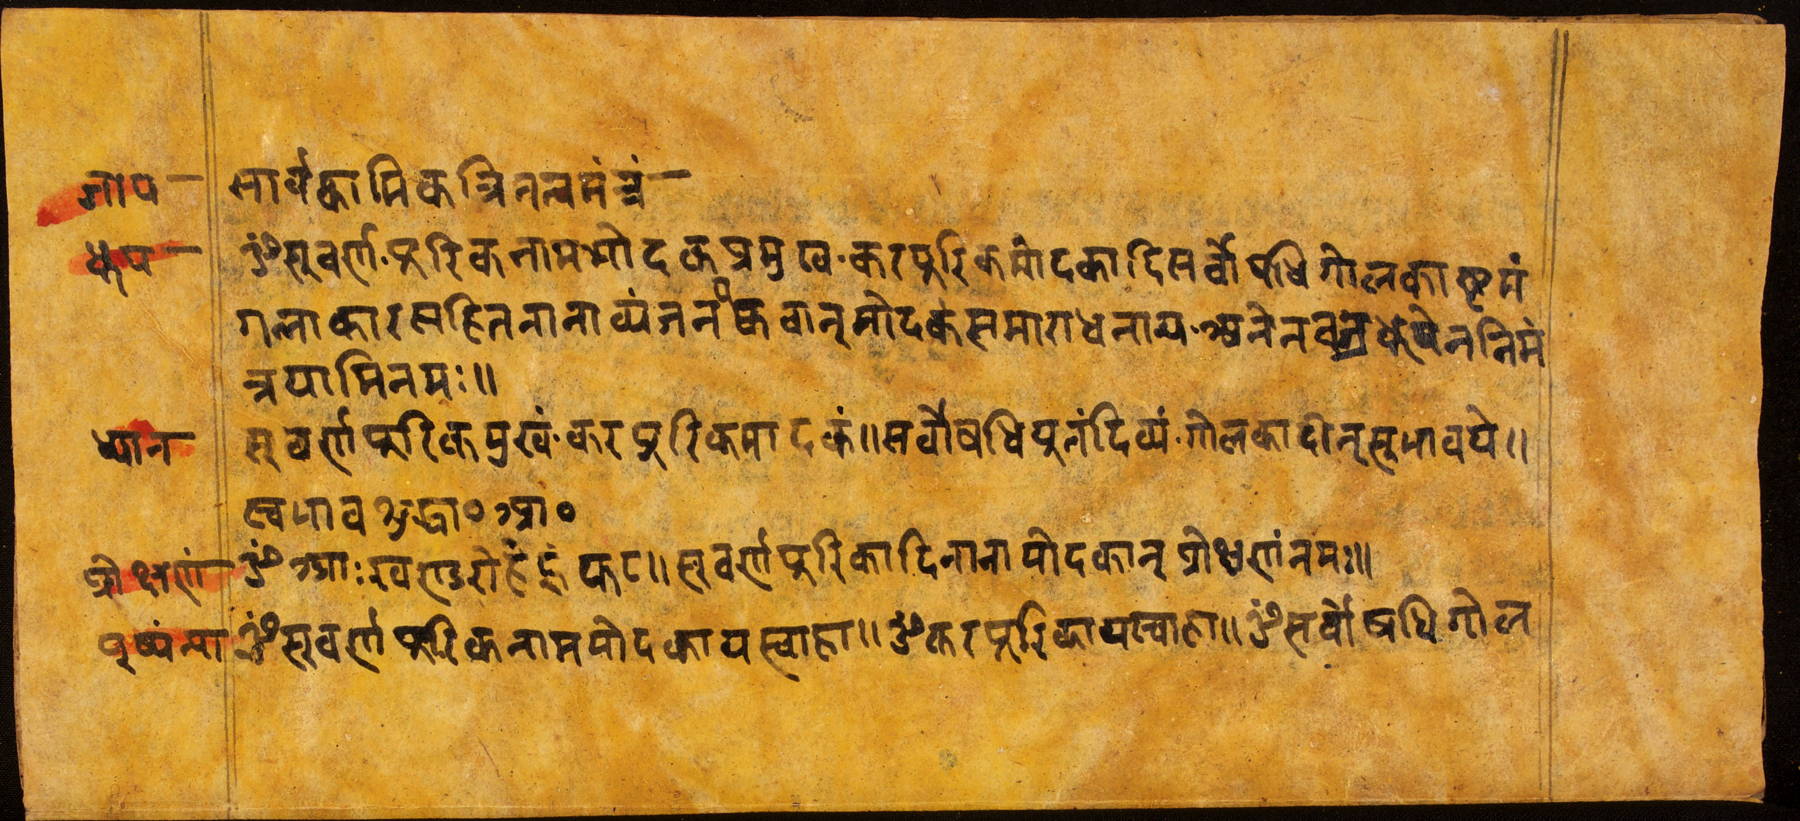 जाप - सार्वकामिकत्रितत्वमंत्रं -
धूप - ॐ सुवर्णपुरिकनाममोदकप्रमुख·करपुरिकमोदकादिसर्वौषधिगोलकाष्टमं
गलाकारसहितनानाव्यंजनपक्वान्मोदकसमाराधनाय·अनेनवज्रधूपेननिमं
त्रयामिनमः॥
ध्यान सुवर्णपुरिकमुखं·करपुरिकमोदकं॥सर्वौषधियुतंदिव्यं·गोलकादीन्सुभावये॥
स्वभावशुद्धा० आ०
प्रोक्षणं - ॐ आः खण्डरोहे हुं हुं फट्॥सुवर्णपुरिकादिनानामोदकान्प्रोक्षणंनमः॥
पुष्पंन्या ॐ सुवर्णपुरिकनाममोदकायस्वाहा॥ॐ करपुरिकायस्वाहा॥ॐ सर्वौषधिगोल